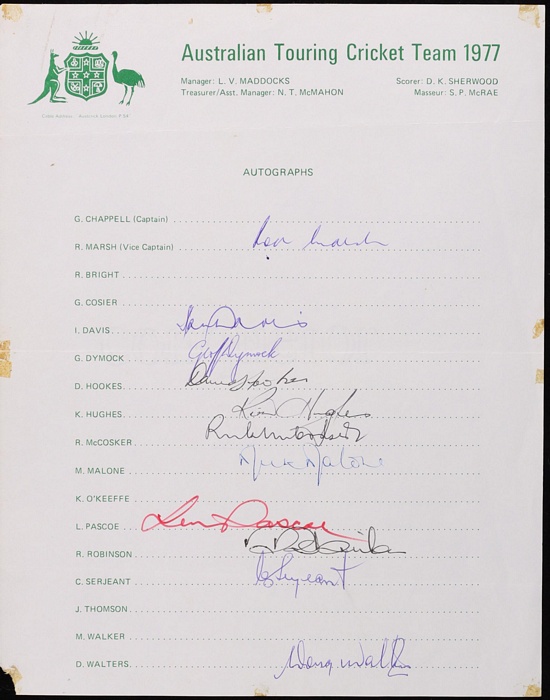 Australian Touring Cricket Team 1977
Manager: L. V. MADDOCKS Scorer: D. K. SHERWOOD
Treasurer/Asst. Manager: N. T. McMAHON Masseur: S. P. McRAE
AUTOGRAPHS
G. CHAPPELL (Captain)
R. MARSH (Vice Captain) Rod Marsh
R. BRIGHT
G. COSIER
I. DAVIS Ian Davis
G. DYMOCK Geoff Dymock
D. HOOKES David Hookes
K. HUGHES Kim Hughes
R. McCOSKER
M. MALONE Mick Malone
K. O'KEEFFE
L. PASCOE Len Pascoe
R. ROBINSON
C. SERJEANT C Serjeant
J. THOMSON
M. WALKER
D. WALTERS Doug Walters